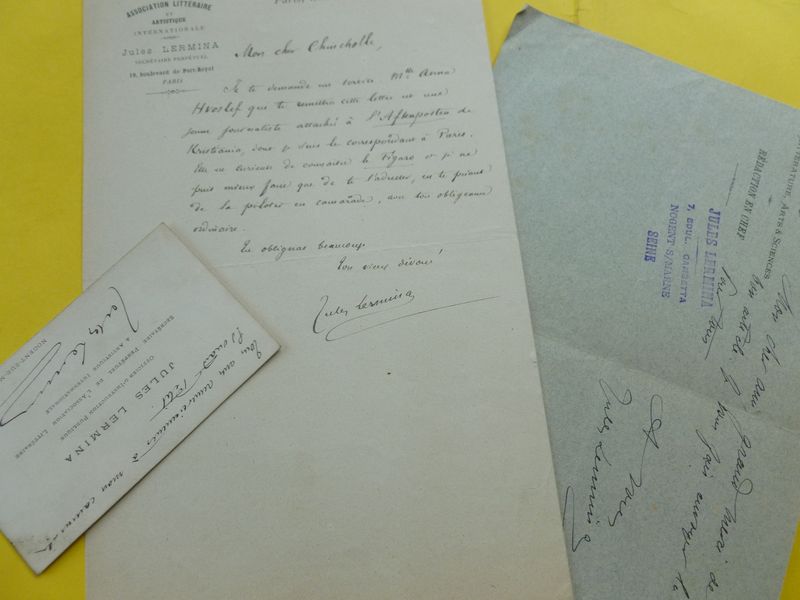 ASSOCIATION LITTÉRAIRE
ET
ARTISTIQUE
INTERNATIONALE
Jules LERMINA
SECRÉTAIRE PERPÉTUEL
19, boulevard de Port-Royal
PARIS
Mon cher Chincholle,
Je te demande un service. Mlle Anna
Hvoslef que te remettra cette lettre est une
jeune journaliste attachée à l'Aftenposten de
Kristiania, dont je suis le correspondant à Paris.
Elle est curieuse de connaître le Figaro et je ne
puis mieux faire que de te l'adresser, en te priant
de la piloter en camarade, avec ton obligeance
ordinaire.
En obligeras beaucoup
Ton vieux dévoué
Jules Lermina
LITTÉRATURE, ARTS & SCIENCES
RÉDACTION EN CHEF
JULES LERMINA
7, BOUL. GAMBETTA
NOGENT S/MARNE
SEINE
Mon cher ami, grand merci de
A vous
Jules Lermina
JULES LERMINA
OFFICIER D'INSTRUCTION PUBLIQUE
SECRÉTAIRE PERPÉTUEL DE L'ASSOCIATION LITTÉRAIRE
& ARTISTIQUE INTERNATIONALE
NOGENT-SUR-M